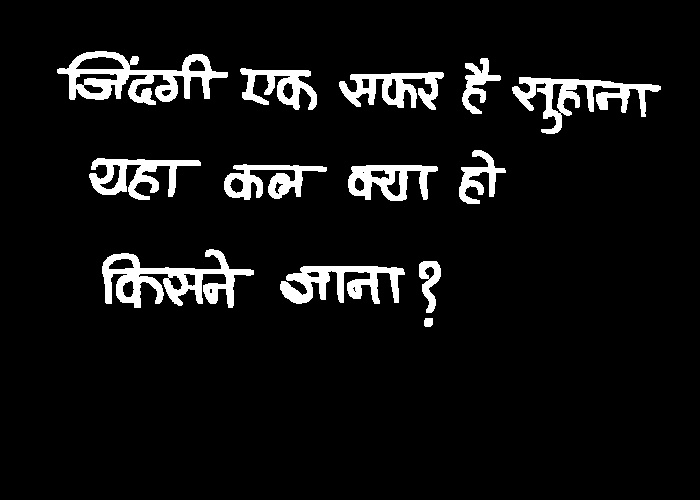 जिंदगी एक सफर है सुहाना
यहा कल क्या हो
किसने जाना?